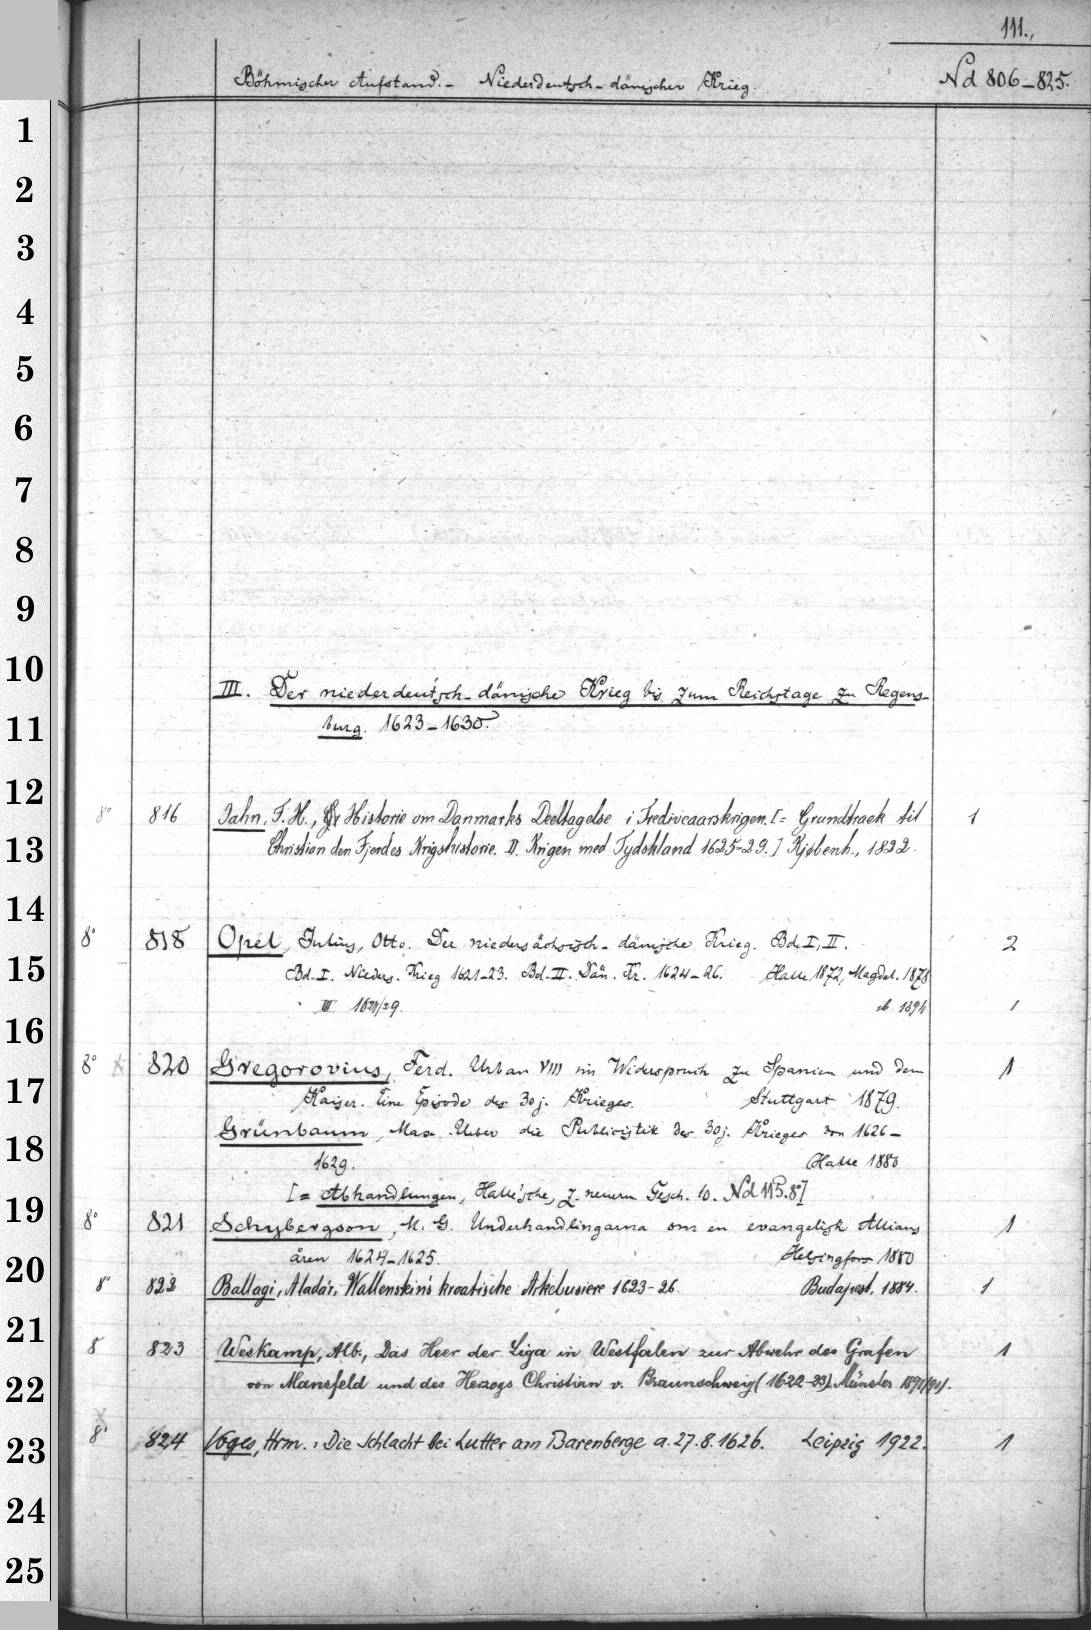 111.,
Böhmischer Aufstand. – Niederdeutsch-dänischer Krieg.
Nd 806–825.
1
2
3
4
5
6
7
8
9
10
III. Der niederdeutsch-dänische Krieg bis zum Reichstage zu Regens-
11
burg. 1623–1630.
12
8° 816 Jahn, F. H., Historie om Danmarks Deeltagelse i Trediveaarskrigen. [= Grundtraek til 1
13
Christian den Fjerdes Krigshistorie. II. Krigen med Tydskland 1625-29.] Kjøbenh., 1822.
14
8° 818 Opel, Julius, Otto. Der niedersächsisch-dänische Krieg. Bd. I, II. 2
15
Bd. I. Nieders. Krieg 1621–23. Bd. II. Dän. Kr. 1624–26. Halle 1872, Magdeb. 1878
III 1627/29. ib 1894 1
16
8° x 820 Gregorovius, Ferd. Urban VIII im Widerspruch zu Spanien und dem 1
17
Kaiser. Eine Episode des 30j. Krieges. Stuttgart 1879.
Grünbaum, Max. Ueber die Publicistik des 30j. Krieges von 1626–
18
1629. Halle 1880
[= Abhandlungen, Halle'sche, z. neuern Gesch. 10. Nd 115.8°]
19
8° 821 Schybergson, M. G. Underhandlingarna om en evangelisk Allians 1
åren 1624–1625. Helsingfors 1880
20
8° 822 Ballagi, Aladár, Wallenstein's kroatische Arkebusiere 1623-26. Budapest, 1884. 1
21
8 823 Weskamp, Alb., Das Heer der Liga in Westfalen zur Abwehr des Grafen 1
22
von Mansfeld und des Herzogs Christian v. Braunschweig (1622-23). Münster 1891
x
23
8° 824 Voges, Hrm.: Die Schlacht bei Lutter am Barenberge a. 27.8.1626. Leipzig 1922. 1
24
25